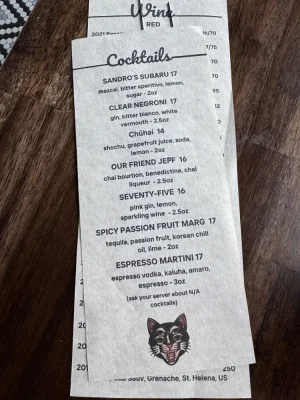 Wine
RED
2021
/70
7/75
70
70
95
12
Cocktails
SANDRO'S SUBARU 17
mezcal, bitter aperitivo, lemon,
sugar - 2oz
CLEAR NEGRONI 17
gin, bitter bianco, white
vermouth - 2.5oz
Chūhai 14
shochu, grapefruit juice, soda,
lemon - 2oz
OUR FRIEND JEFF 16
chai bourbon, benedictine, chai
liqueur - 2.5oz
SEVENTY-FIVE 16
pink gin, lemon,
sparkling wine - 2.5oz
SPICY PASSION FRUIT MARG 17
tequila, passion fruit, korean chili
oil, lime - 2oz
ESPRESSO MARTINI 17
espresso vodka, kaluha, amaro,
espresso - 3oz
(ask your server about N/A
cocktails)
20
20
201
250
Sauv, Grenache, St. Helena, US